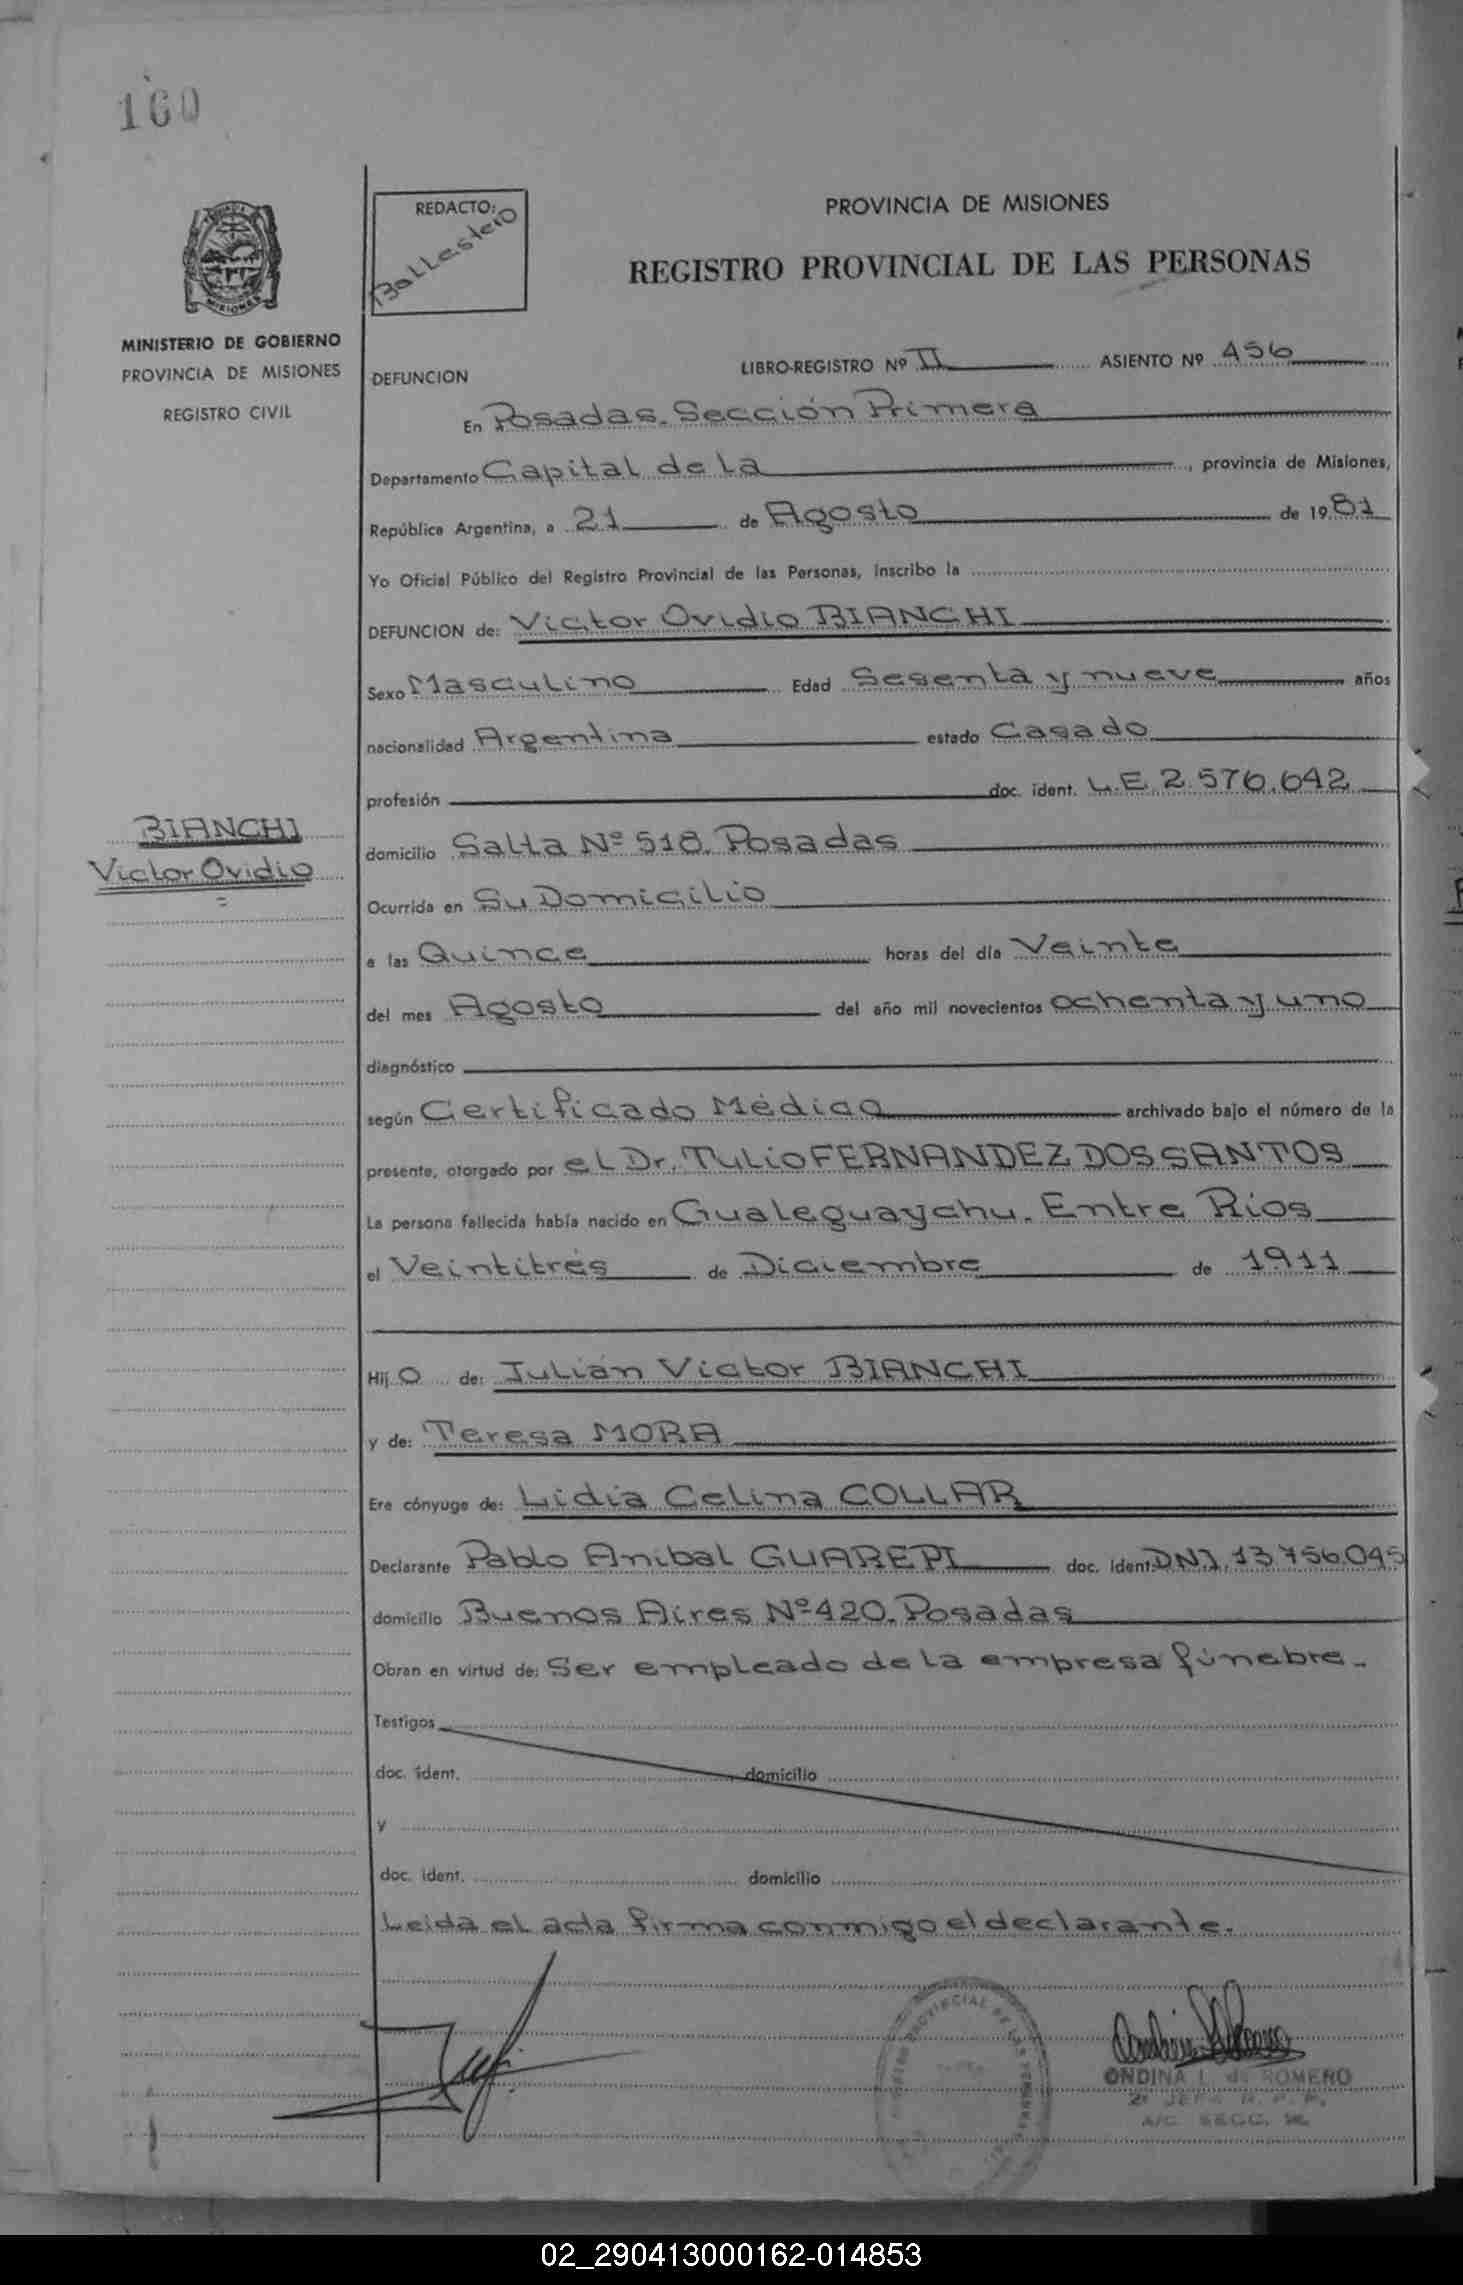 160
REDACTO:
Ballestero
PROVINCIA DE MISIONES
REGISTRO PROVINCIAL DE LAS PERSONAS
MISIONES
MINISTERIO DE GOBIERNO
PROVINCIA DE MISIONES
REGISTRO CIVIL
DEFUNCION
LIBRO-REGISTRO Nº II ASIENTO Nº 456
En Posadas. Sección Primera
Departamento Capital de la, provincia de Misiones,
República Argentina, a 21 de Agosto de 1981
Yo Oficial Público del Registro Provincial de las Personas, inscribo la
DEFUNCION de: Victor Ovidio BIANCHI
Sexo Masculino Edad Sesenta y nueve años
nacionalidad Argentina estado Casado
profesión doc. ident. L.E. 2.576.642
BIANCHI
Victor Ovidio
domicilio Salta Nº 518. Posadas
Ocurrida en Su Domicilio
a las Quince horas del día Veinte
del mes Agosto del año mil novecientos ochenta y uno
diagnóstico
según Certificado Médico archivado bajo el número de la
presente, otorgado por el Dr. Tulio FERNANDEZ DOS SANTOS
La persona fallecida había nacido en Gualeguaychu. Entre Rios
el Veintitrés de Diciembre de 1911
Hij o de: Julián Victor BIANCHI
y de: Teresa MORA
Era cónyuge de: Lidia Celina COLLAR
Declarante Pablo Anibal GUAREPI doc. ident. DNI. 13.756.045
domicilio Buenos Aires Nº 420. Posadas
Obran en virtud de: Ser empleado de la empresa fúnebre.
Testigos
doc. ident. domicilio
y
doc. ident. domicilio
Leida el acta firma conmigo el declarante.
ONDINA L. de ROMERO
2º JEFE R. P. P.
A/C SECC. 1ª
02_290413000162-014853